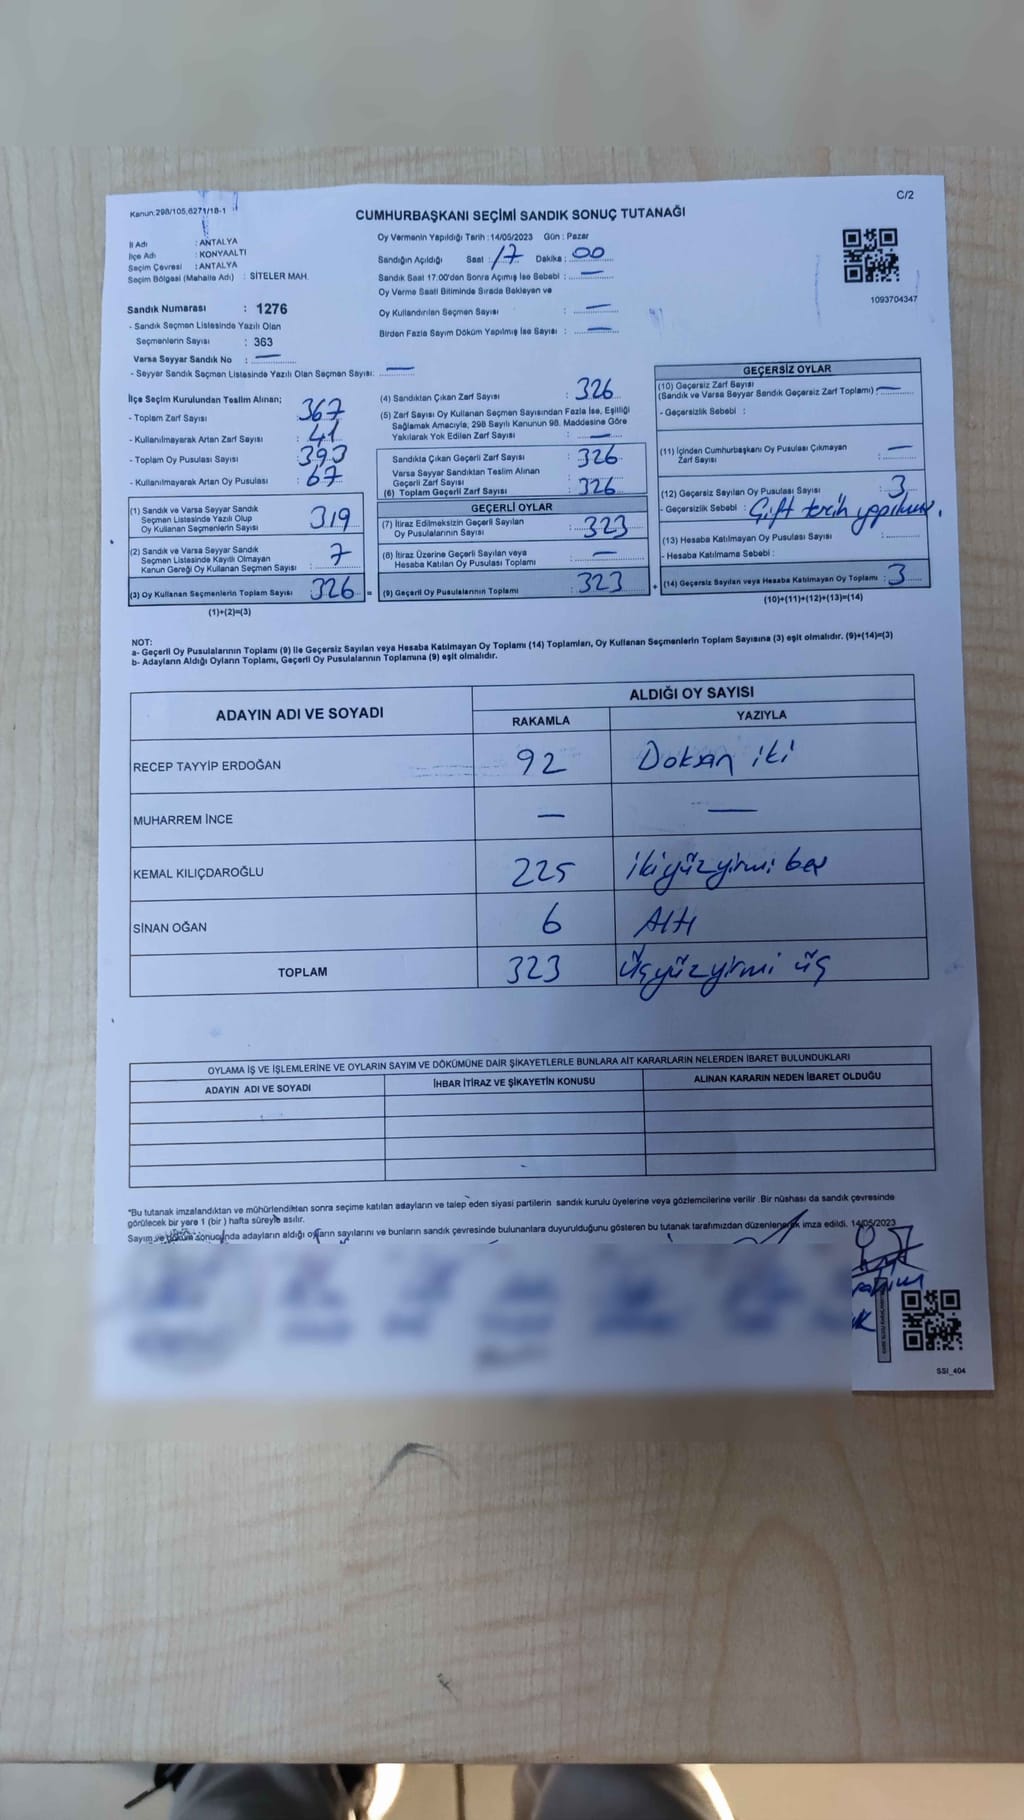 Kanun:298/105,6271/18-1
C/2
CUMHURBAŞKANI SEÇİMİ SANDIK SONUÇ TUTANAĞI
İl Adı : ANTALYA
İlçe Adı : KONYAALTI
Seçim Çevresi : ANTALYA
Seçim Bölgesi (Mahalle Adı) : SİTELER MAH.
Sandık Numarası : 1276
- Sandık Seçmen Listesinde Yazılı Olan
Seçmenlerin Sayısı : 363
Varsa Seyyar Sandık No : —
- Seyyar Sandık Seçmen Listesinde Yazılı Olan Seçmen Sayısı: —
Oy Vermenin Yapıldığı Tarih :14/05/2023 Gün : Pazar
Sandığın Açıldığı Saat : 17 Dakika : 00
Sandık Saat 17.00'dan Sonra Açımış İse Sebebi : —
Oy Verme Saati Bitiminde Sırada Bekleyen ve
Oy Kullandırılan Seçmen Sayısı : —
Birden Fazla Sayım Döküm Yapılmış İse Sayısı : —
1093704347
İlçe Seçim Kurulundan Teslim Alınan;
- Toplam Zarf Sayısı : 367
- Kullanılmayarak Artan Zarf Sayısı : 41
- Toplam Oy Pusulası Sayısı : 393
- Kullanılmayarak Artan Oy Pusulası : 67
(1) Sandık ve Varsa Seyyar Sandık
Seçmen Listesinde Yazılı Olup
Oy Kullanan Seçmenlerin Sayısı 319
(2) Sandık ve Varsa Seyyar Sandık
Seçmen Listesinde Kayıtlı Olmayan
Kanun Gereği Oy Kullanan Seçmen Sayısı : 7
(3) Oy Kullanan Seçmenlerin Toplam Sayısı : 326 =
(1)+(2)=(3)
(4) Sandıktan Çıkan Zarf Sayısı : 326
(5) Zarf Sayısı Oy Kullanan Seçmen Sayısından Fazla İse, Eşitliği
Sağlamak Amacıyla, 298 Sayılı Kanunun 98. Maddesine Göre
Yakılarak Yok Edilen Zarf Sayısı : —
Sandıkta Çıkan Geçerli Zarf Sayısı : 326
Varsa Seyyar Sandıktan Teslim Alınan
Geçerli Zarf Sayısı :
(6) Toplam Geçerli Zarf Sayısı : 326
GEÇERLİ OYLAR
(7) İtiraz Edilmeksizin Geçerli Sayılan
Oy Pusulalarının Sayısı : 323
(8) İtiraz Üzerine Geçerli Sayılan veya
Hesaba Katılan Oy Pusulası Toplamı : —
(9) Geçerli Oy Pusulalarının Toplamı : 323 +
GEÇERSİZ OYLAR
(10) Geçersiz Zarf Sayısı
(Sandık ve Varsa Seyyar Sandık Geçersiz Zarf Toplamı) : —
- Geçersizlik Sebebi :
(11) İçinden Cumhurbaşkanı Oy Pusulası Çıkmayan
Zarf Sayısı : —
(12) Geçersiz Sayılan Oy Pusulası Sayısı : 3
- Geçersizlik Sebebi : Çift tercih yapılması.
(13) Hesaba Katılmayan Oy Pusulası Sayısı :
- Hesaba Katılmama Sebebi :
(14) Geçersiz Sayılan veya Hesaba Katılmayan Oy Toplamı : 3
(10)+(11)+(12)+(13)=(14)
NOT:
a- Geçerli Oy Pusulalarının Toplamı (9) ile Geçersiz Sayılan veya Hesaba Katılmayan Oy Toplamı (14) Toplamları, Oy Kullanan Seçmenlerin Toplam Sayısına (3) eşit olmalıdır. (9)+(14)=(3)
b- Adayların Aldığı Oyların Toplamı, Geçerli Oy Pusulalarının Toplamına (9) eşit olmalıdır.
ADAYIN ADI VE SOYADI ALDIĞI OY SAYISI
RAKAMLA YAZIYLA
RECEP TAYYİP ERDOĞAN 92 Doksan iki
MUHARREM İNCE — —
KEMAL KILIÇDAROĞLU 225 ikiyüzyirmi beş
SİNAN OĞAN 6 Altı
TOPLAM 323 üçyüzyirmi üç
OYLAMA İŞ VE İŞLEMLERİNE VE OYLARIN SAYIM VE DÖKÜMÜNE DAİR ŞİKAYETLERLE BUNLARA AİT KARARLARIN NELERDEN İBARET BULUNDUKLARI
ADAYIN ADI VE SOYADI İHBAR İTİRAZ VE ŞİKAYETİN KONUSU ALINAN KARARIN NEDEN İBARET OLDUĞU
*Bu tutanak imzalandıktan ve mühürlendikten sonra seçime katılan adayların ve talep eden siyasi partilerin sandık kurulu üyelerine veya gözlemcilerine verilir. Bir nüshası da sandık çevresinde
görülecek bir yere 1 (bir) hafta süreyle asılır.
Sayım ve döküm sonucunda adayların aldığı oyların sayılarını ve bunların sandık çevresinde bulunanlara duyurulduğunu gösteren bu tutanak tarafımızdan düzenlenerek imza edildi. 14/05/2023
SSI_404